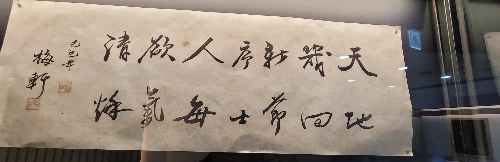 天地
幾回
新節
序士
人每
欲氣
清
己巳年
梅軒